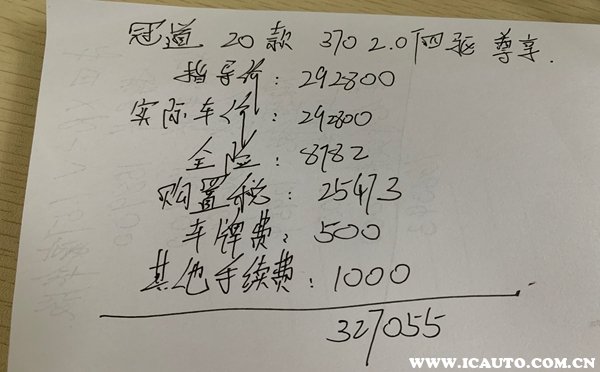 冠道 20款 370 2.0T四驱 尊享.
指导价: 292800
实际车价: 292800
全险: 8782
购置税: 25473
车牌费: 500
其他手续费: 1000
327055
WWW.ICAUTO.COM.CN